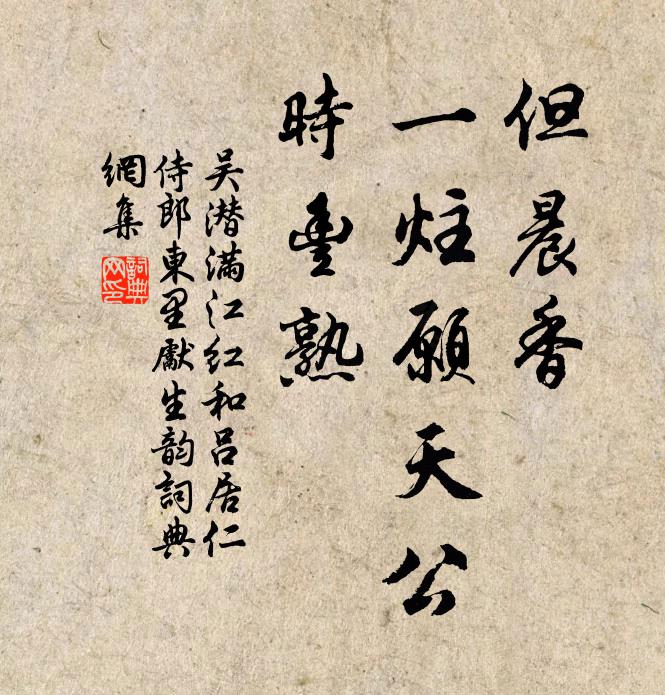 但晨香
一炷願天公
時豊熟
吴潜满江紅和吕居仁
侍郎東里獻生韵詞典
網集
詞典網印